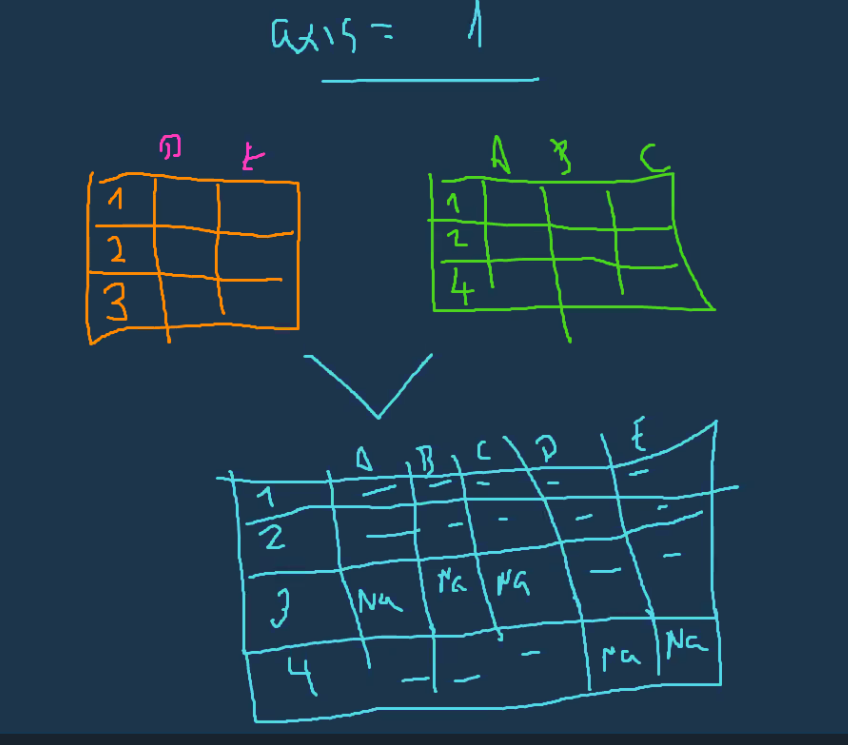 axis = 1
D E
A B C
1
2
3
1
2
4
A B C D E
1 — — - - —
2 — - - - -
3 Na Na Na — —
4 — — — Na Na